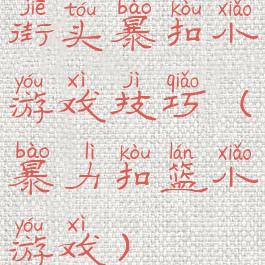 jiē tóu bào kòu xiǎo
街头暴扣小
yóu xì jì qiǎo
游戏技巧（
bào lì kòu lán xiǎo
暴力扣篮小
yóu xì
游戏）